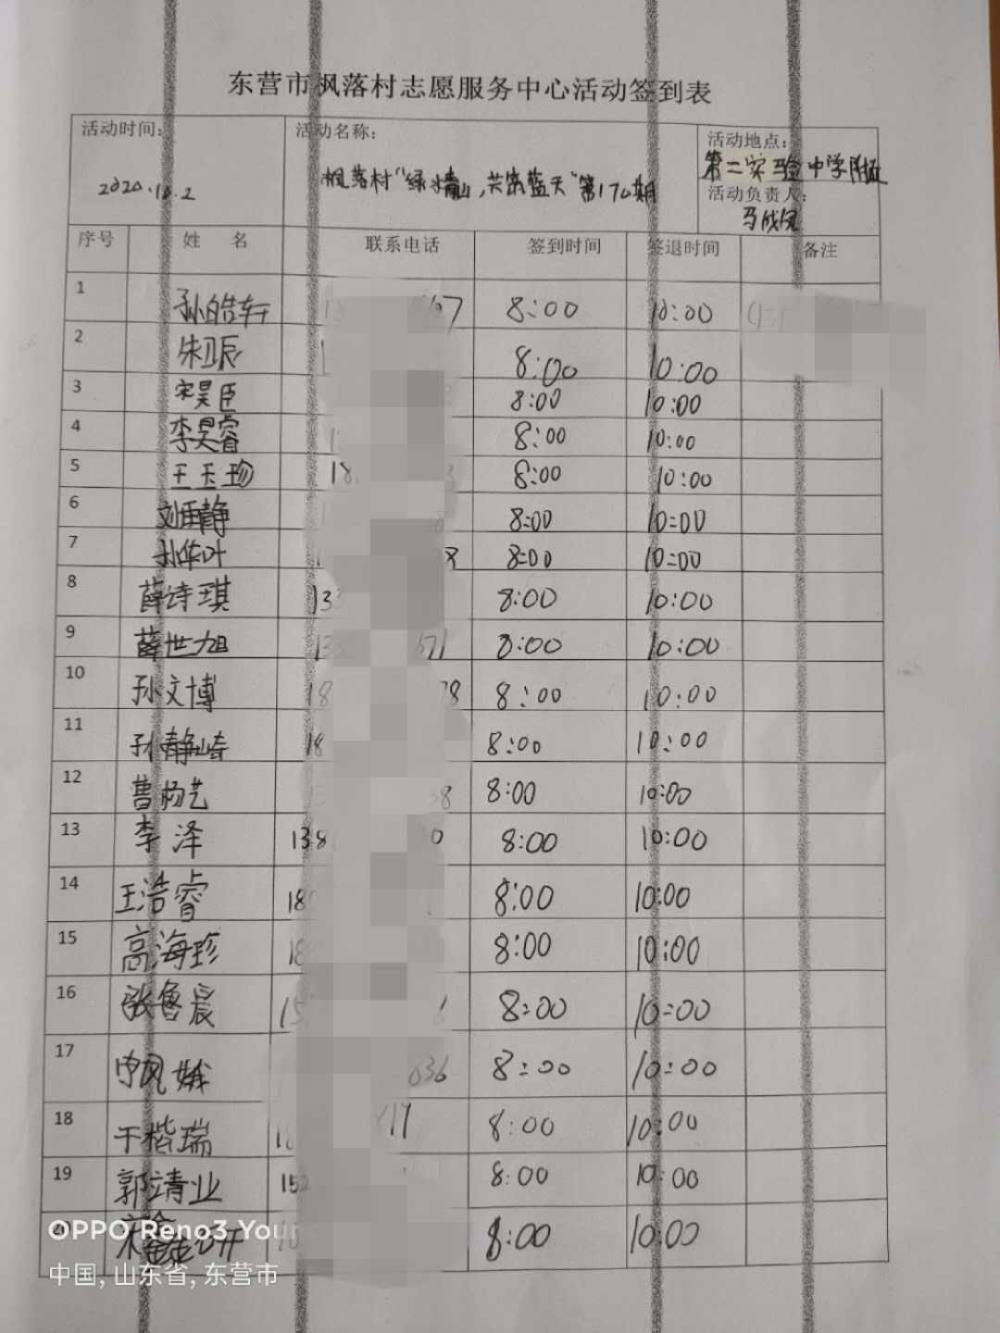 东营市枫落村志愿服务中心活动签到表
活动时间: 活动名称: 活动地点:
2020.10.2 枫落村“绿水青山,共筑蓝天”第170期 第二实验中学附近
活动负责人:
序号 姓 名 联系电话 签到时间 签退时间 备注
1 孙皓轩 8:00 10:00
2 朱卫辰 8:00 10:00
3 宋昊臣 8:00 10:00
4 李昊睿 8:00 10:00
5 王玉珍 18 8:00 10:00
6 刘雨静 8:00 10:00
7 孙华叶 8:00 10:00
8 薛诗琪 13 8:00 10:00
9 薛世旭 13 8:00 10:00
10 孙文博 18 8:00 10:00
11 孙静崎 18 8:00 10:00
12 曹杨艺 8:00 10:00
13 李泽 138 0 8:00 10:00
14 王浩睿 18 8:00 10:00
15 高海珍 18 8:00 10:00
16 张鲁宸 15 8:00 10:00
17 凤娥 036 8:00 10:00
18 于楷瑞 8:00 10:00
19 郭靖业 152 8:00 10:00
8:00 10:00
OPPO Reno3 You
中国, 山东省, 东营市